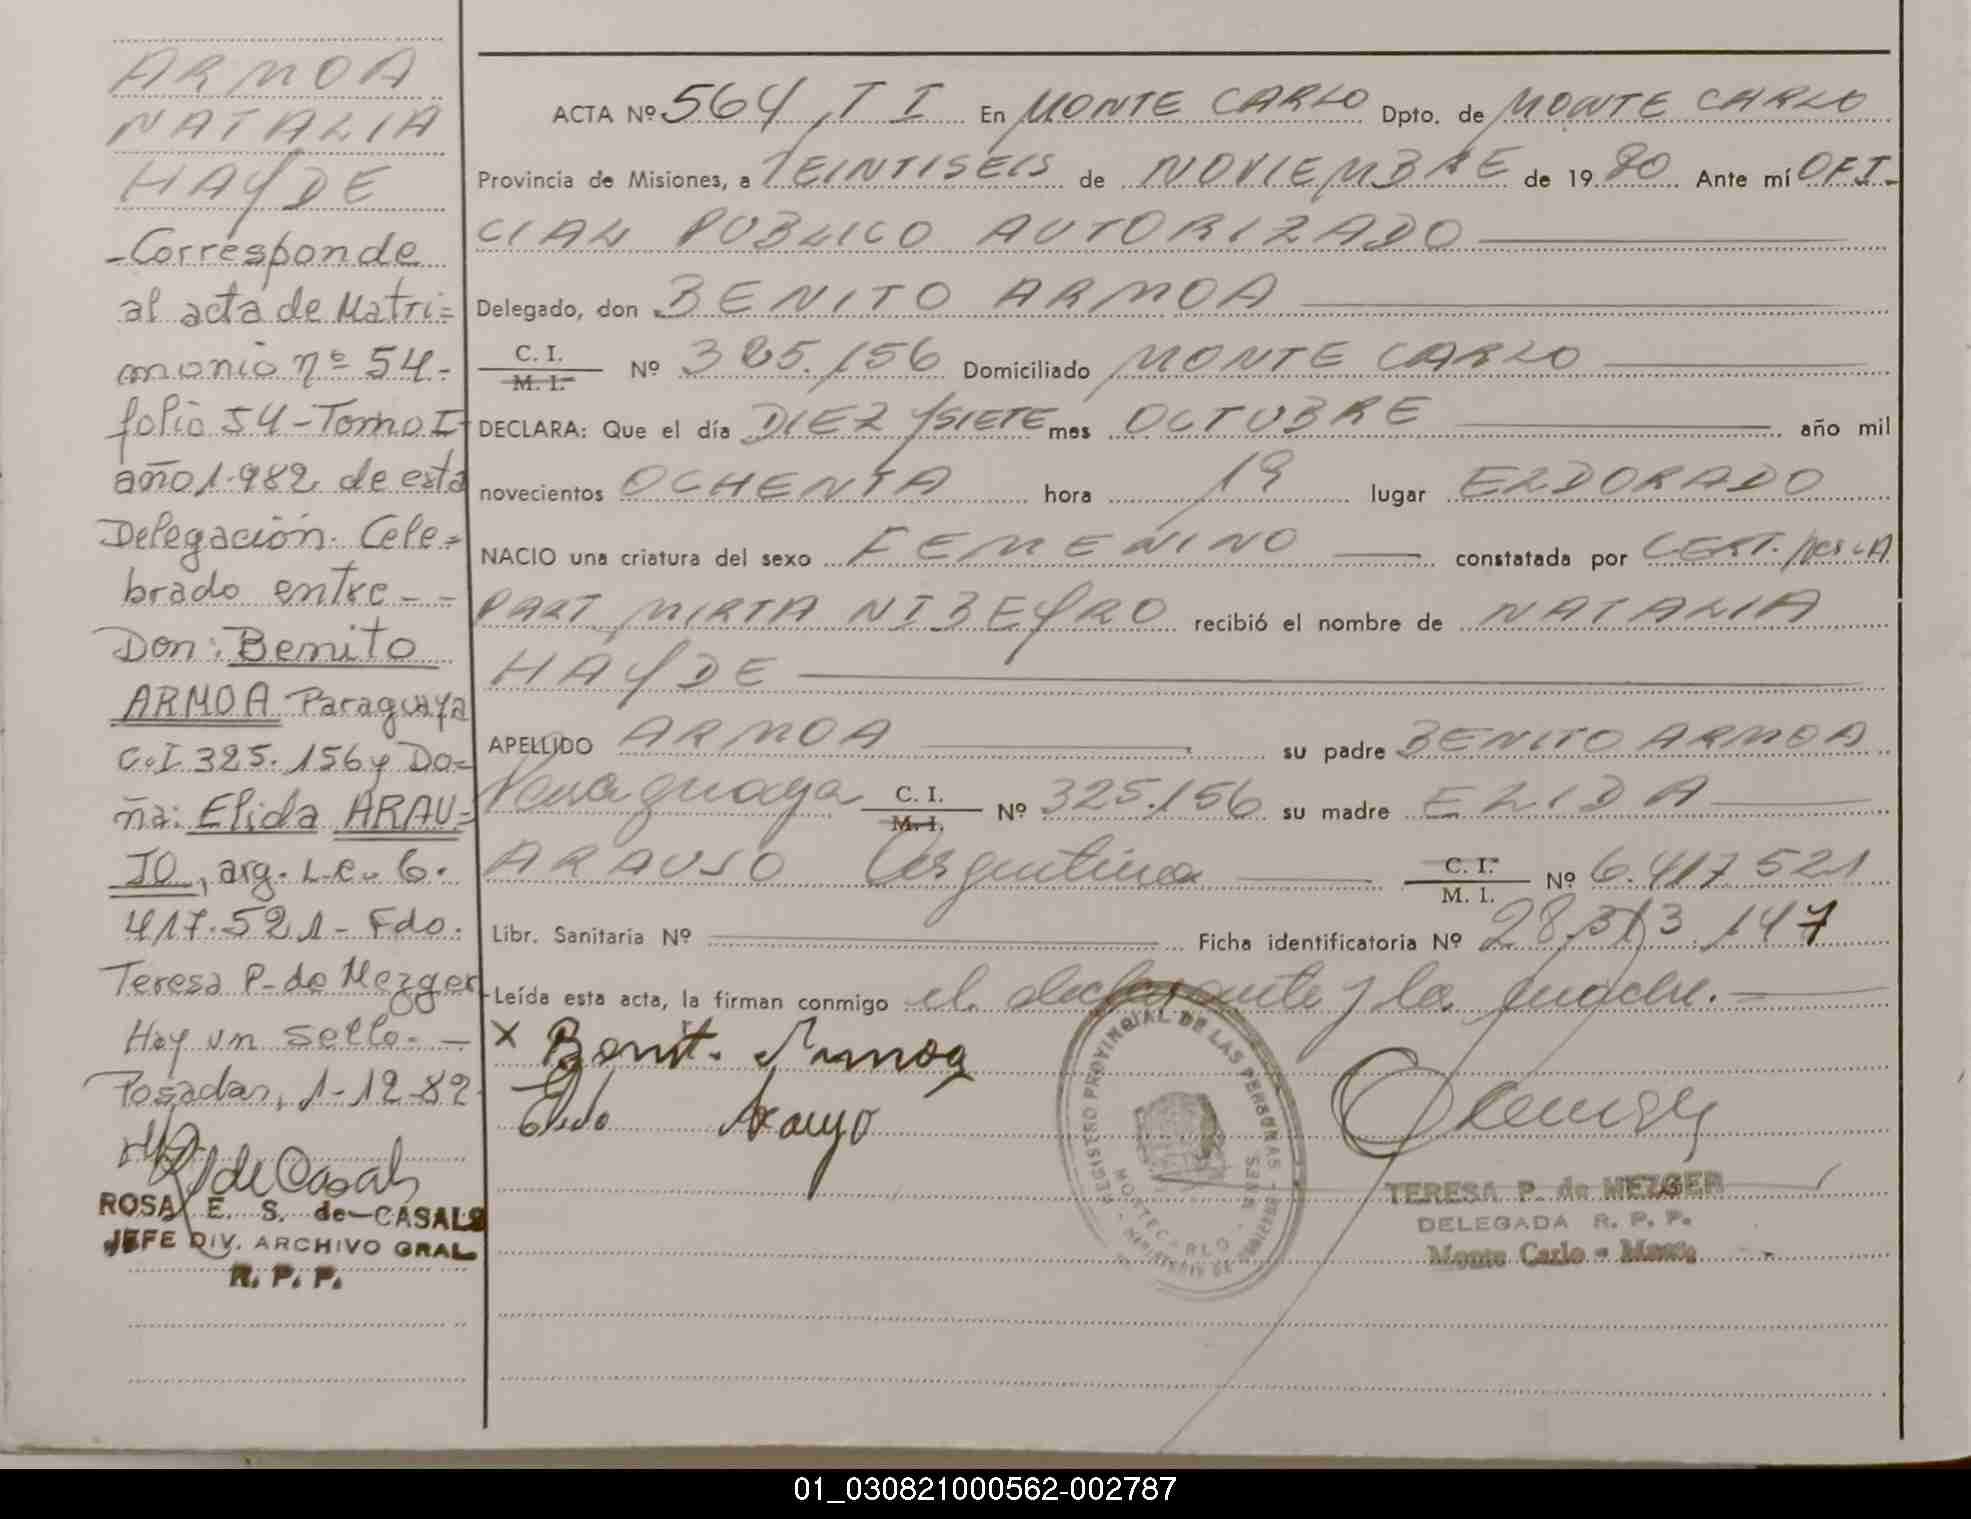 ARMOA
NATALIA
HAYDE
-Corresponde
al acta de Matri=
monio nº 54-
folio 54-Tomo I-
año 1.982 de esta
Delegación. Cele=
brado entre - -
Don: Benito
ARMOA Paraguaya
C.I 325.156 y Do=
ña: Elida ARAU=
JO, arg. L.C. 6.
417.521- Fdo.
Teresa P. de Mezger
Hay un sello. -
Posadas, 1-12-82
ROSA E. S. de CASALS
JEFE DIV. ARCHIVO GRAL
R. P. P.
ACTA Nº 564, T I En MONTE CARLO Dpto. de MONTE CARLO
Provincia de Misiones, a VEINTISEIS de NOVIEMBRE de 19 80 Ante mí OFI-
CIAL PUBLICO AUTORIZADO
Delegado, don BENITO ARMOA
C. I.
M. I. Nº 325.156 Domiciliado MONTE CARLO
DECLARA: Que el día DIEZ Y SIETE mes OCTUBRE año mil
novecientos OCHENTA hora 19 lugar ELDORADO
NACIO una criatura del sexo FEMENINO constatada por CERT. LA
PART. MIRTA NIBEYRO recibió el nombre de NATALIA
HAYDE
APELLIDO ARMOA su padre BENITO ARMOA
Paraguaya C. I.
M. I. Nº 325.156 su madre ELIDA
ARAUJO Argentina C. I.
M. I. Nº 6.417.521
Libr. Sanitaria Nº Ficha identificatoria Nº 28.313.147
Leída esta acta, la firman conmigo el declarante y la madre.
x Benito Armoa
Elida Araujo
REGISTRO PROVINCIAL DE LAS PERSONAS - MINISTERIO DE GOBIERNO
MONTECARLO - MSNES
TERESA P. de MEZGER
DELEGADA R. P. P.
Monte Carlo - Mnes
01_030821000562-002787